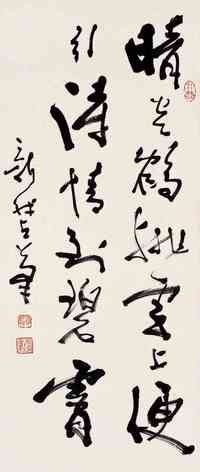 晴空一鶴排雲上便
引詩情到碧霄